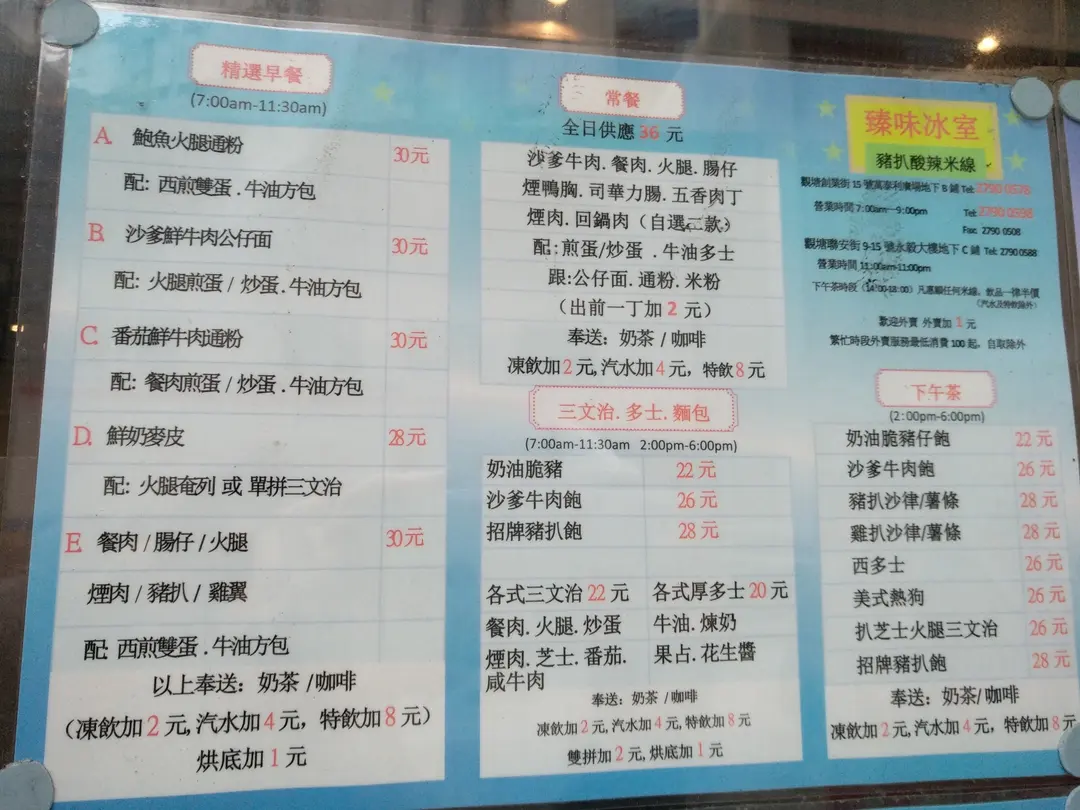 精選早餐
(7:00am-11:30am)
A. 鮑魚火腿通粉 30元
配: 西煎雙蛋 . 牛油方包
B. 沙爹鮮牛肉公仔面 30元
配: 火腿煎蛋 / 炒蛋 . 牛油方包
C. 番茄鮮牛肉通粉 30元
配: 餐肉煎蛋 / 炒蛋 . 牛油方包
D. 鮮奶麥皮 28元
配: 火腿奄列 或 單拼三文治
E. 餐肉 / 腸仔 / 火腿 30元
煙肉 / 豬扒 / 雞翼
配: 西煎雙蛋 . 牛油方包
以上奉送: 奶茶 /咖啡
(凍飲加 2 元, 汽水加 4 元, 特飲加 8 元)
烘底加 1 元
常餐
全日供應 36 元
沙爹牛肉. 餐肉. 火腿. 腸仔
煙鴨胸. 司華力腸. 五香肉丁
煙肉. 回鍋肉 (自選二款)
配: 煎蛋/炒蛋 . 牛油多士
跟:公仔面. 通粉. 米粉
(出前一丁加 2 元)
奉送: 奶茶 / 咖啡
凍飲加 2 元, 汽水加 4 元, 特飲 8 元
三文治. 多士. 麵包
(7:00am-11:30am 2:00pm-6:00pm)
奶油脆豬 22 元
沙爹牛肉飽 26 元
招牌豬扒飽 28 元
各式三文治 22 元 各式厚多士 20 元
餐肉. 火腿. 炒蛋 牛油. 煉奶
煙肉. 芝士. 番茄. 果占. 花生醬
咸牛肉
奉送: 奶茶 / 咖啡
凍飲加 2 元, 汽水加 4 元, 特飲加 8 元
雙拼加 2 元, 烘底加 1 元
臻味冰室
豬扒酸辣米線
觀塘創業街 15 號萬泰利廣場地下 B 鋪 Tel: 2790 0578
營業時間 7:00am--9:00pm Tel: 2790 0598
Fax: 2790 0508
觀塘聯安街 9-15 號永毅大樓地下 C 鋪 Tel: 2790 0588
營業時間 11:00am-11:00pm
下午茶時段 (14:00-18:00) 凡惠顧任何米線、飲品一律半價
(汽水及特飲除外)
歡迎外賣 外賣加 1 元
繁忙時段外賣服務最低消費 100 起, 自取除外
下午茶
(2:00pm-6:00pm)
奶油脆豬仔飽 22 元
沙爹牛肉飽 26 元
豬扒沙律/薯條 28 元
雞扒沙律/薯條 28 元
西多士 26 元
美式熱狗 26 元
扒芝士火腿三文治 26 元
招牌豬扒飽 28 元
奉送: 奶茶/ 咖啡
凍飲加 2 元, 汽水加 4 元, 特飲加 8 元